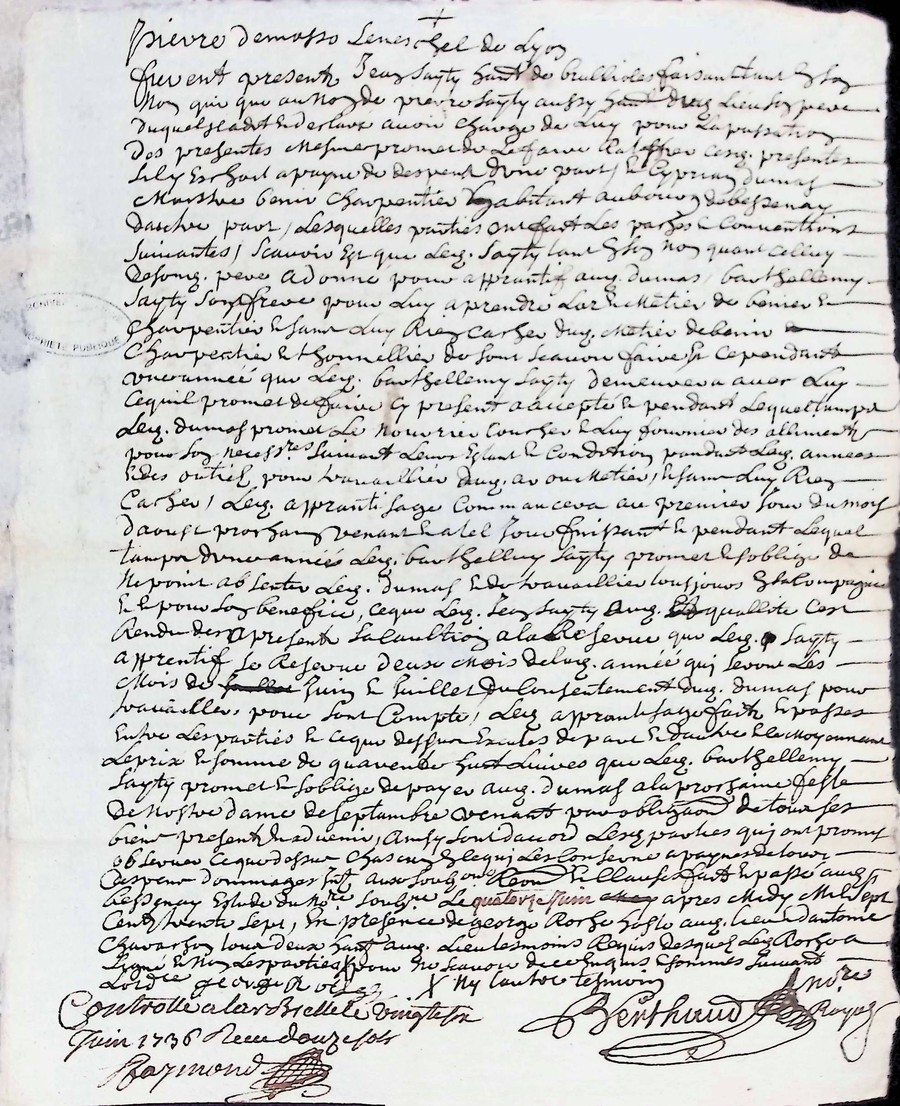 pierre demasso Seneschel de Lyon
furent presents Jean Sayty habt de brullioles faisant tant En son
Nom que que au Nom de pierre Sayty aussy habt dud. Lieu Son pere
Duquel il a dit & desclaré avoir Charge de Luy pour La passation
Des presentes Mesme promet de Le faire Ratiffier Cesd. presentes
Sil y Eschoit a payne de despent d'une part, Et Cyprian dumas
Maistre benir Charpentier habitant au bourg de bessenay
Dautre part, Lesquelles parties ont fait Les pactes & Conventions
Suivantes, Scavoir Est que Led. Sayty tant En Son Nom quant Celluy
De Sond. pere a donné pour apprantif aud. dumas, barthellemy
Sayty Son frere pour Luy aprendre L'ar & Métier de benier &
Charpentier & Sans Luy Rien Cacher dud. Métier de benir &
Charpentier & thonnellier de Sont Scavoir faire Et Cependant
une année que Led. barthellemy Sayty demeurera avec Luy
Ce quil promet de faire Cy present a accepté & pendant Lequel tamps
Led. dumas promet Le Nourrir Coucher & Luy fournier des alliments
pour Son Necessres Suivant Leurs Estant & Condition pandant Led. années
& des outils pour travaillier dud. ar ou Métier, & Sans Luy Rien
Cacher, Led. appranti Sage Commancera au premier Jour du mois
D'aoust prochain venant & a tel Jour finissant & pendant Lequel
tamps d'une années Led. barthellemy Sayty promet & Soblige de
Ne point absenter Led. dumas & de travaillier tousjours En Sa Compagnie
& & pour Son benefice, Ceque Led. Jean Sayty aud. quallité C'est
Rendu des a present Sa Caultion a la Reserve que Led. Sayty
apprentif Se Reserve deux Mois de lad. année qui seront Les
Mois de Juin & Juillet du Consentement dud. dumas pour
travailler pour Sont Compte, Led. apprantisage fait & passés
Entre Les parties & Ceque dessus de part & dautre & Moyennant
Le prix & Somme de quarente huit Livres que Led. barthellemy
Sayty promet & Soblige de payer aud. dumas a la prochaine feste
De Nostre Dame de Septembre venant par obligaon de tous Ses
bien present & advenir, ainsy Sont d'acord Lesd. parties qui ont promis
observer Ceque dessus Chascun En Ce qui Les Conserne a paynes de tous
Despens dommages Ints aux Soubmons Renon & Clauses fait & passé aud.
bessenay Estude du Nore Soubzne Le quatorze Juin apres Midy Mil Sept
Cent trente Sept, En presence de george Roche hoste aud. lieu d'antoine
Chavarhon tous deux habt aud. Lieu tesmoins Requis desquel Led. Roche a
Signé & Non Les parties X pour Ne Scavoir de ce Enquis & Sommés Suivant
Lordce george Roche X Ny l'autre tesmoin
Controllé a la rbrelle le vingt six
Juin 1736 Receu douze sols
Raymond
Berthaud Nore Royal